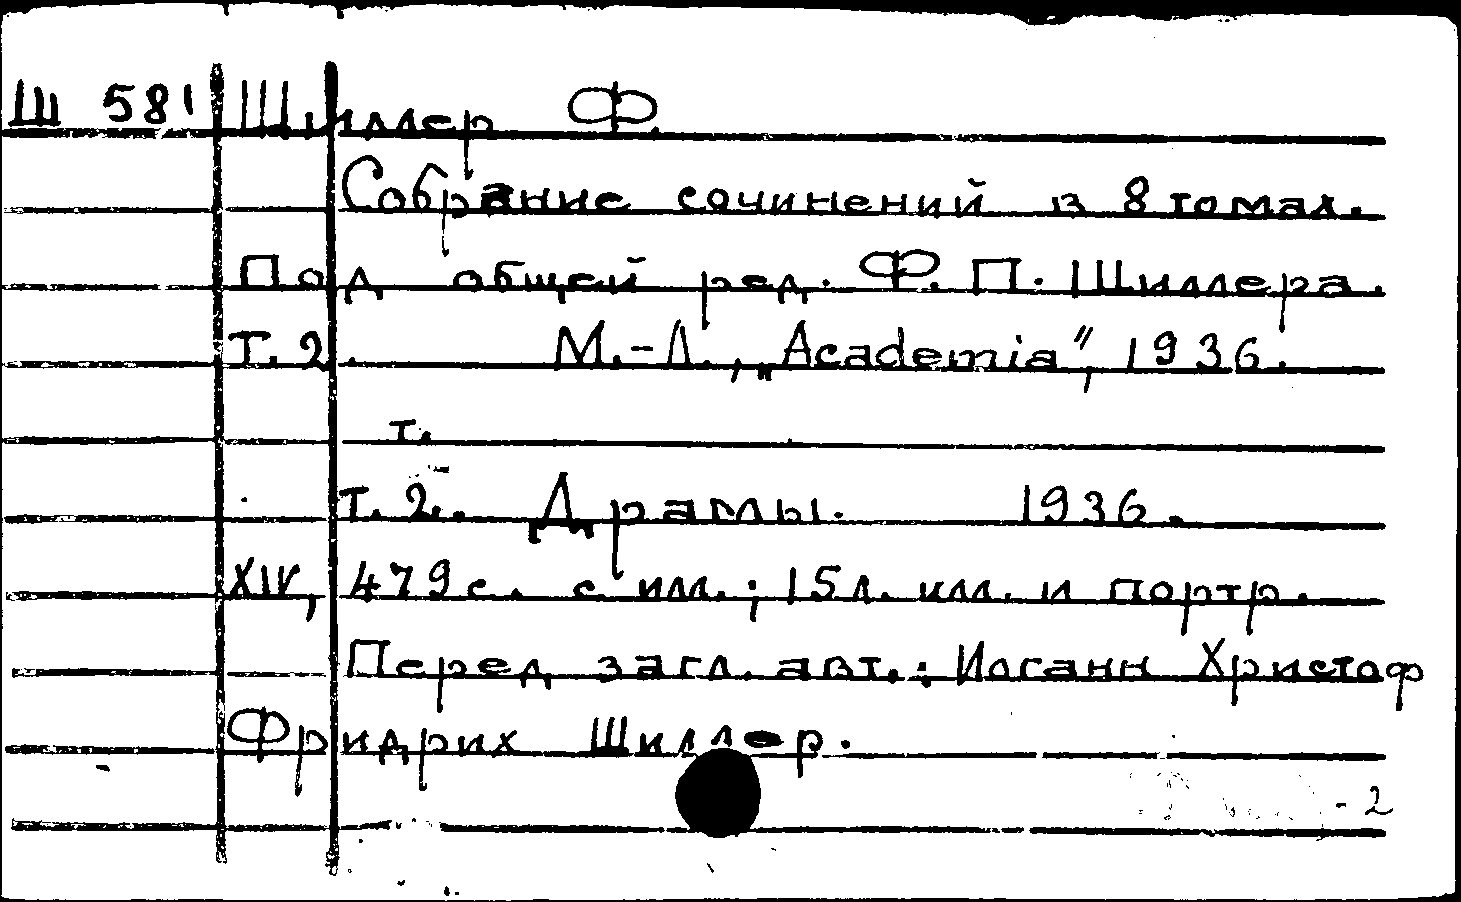 Ш 581 Шиллер Ф.
Собрание сочинений в 8 томах.
Под общей ред. Ф. П. Шиллера.
Т. 2. М.-Л., „Academia", 1936.
т.
т. 2. Драмы. 1936.
XIV, 479 с. с илл.; 15 л. илл. и портр.
Перед загл. авт.: Иоганн Христоф
Фридрих Шиллер.
- 2